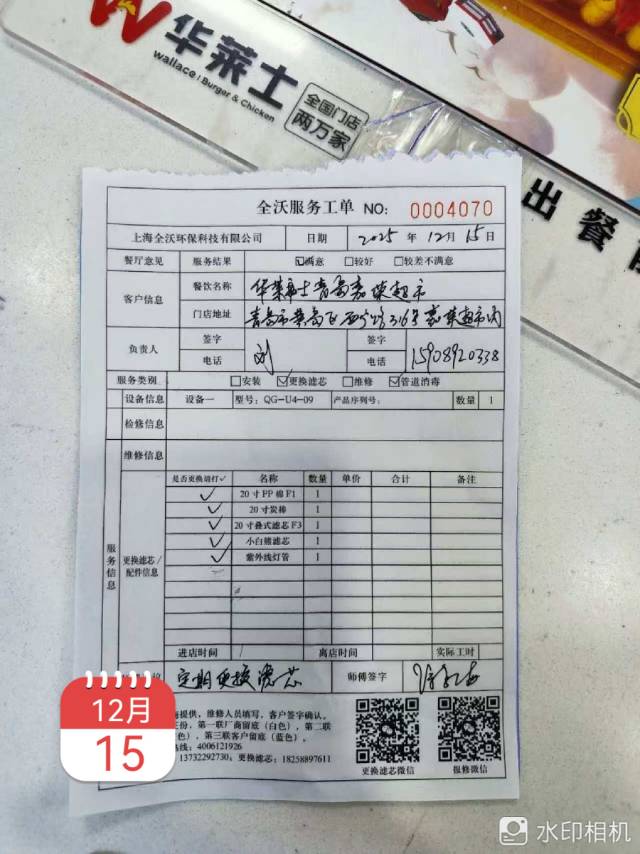 华莱士
wallace | Burger & Chicken
全国门店
两万家
出餐
全沃服务工单 NO: 0004070
上海全沃环保科技有限公司 日期 2025 年 12 月 15 日
餐厅意见 服务结果 ☑满意 □较好 □较差不满意
客户信息 餐饮名称 华莱士青岛嘉荣超市
门店地址 青岛市 316号 超市内
负责人 签字 刘 签字
电话 电话 15908920338
服务类别 □安装 ☑更换滤芯 □维修 ☑管道消毒
设备信息 设备一 型号: QG-U4-09 产品序列号: 数量 1
检修信息
维修信息
服务信息
更换滤芯/配件信息
是否更换请打✓ 名称 数量 单价 合计 备注
✓ 20寸PP棉F1 1
✓ 20寸炭棒 1
✓ 20寸叠式滤芯F3 1
✓ 小白熊滤芯 1
✓ 紫外线灯管 1
进店时间 离店时间 实际工时
定期更换滤芯 师傅签字
提供，维修人员填写，客户签字确认。
份，第一联厂商留底（白色），第二联
色），第三联客户留底（蓝色）。
热线: 4006121926
13732292730; 更换滤芯: 18258897611
更换滤芯微信 报修微信
12月
15
水印相机